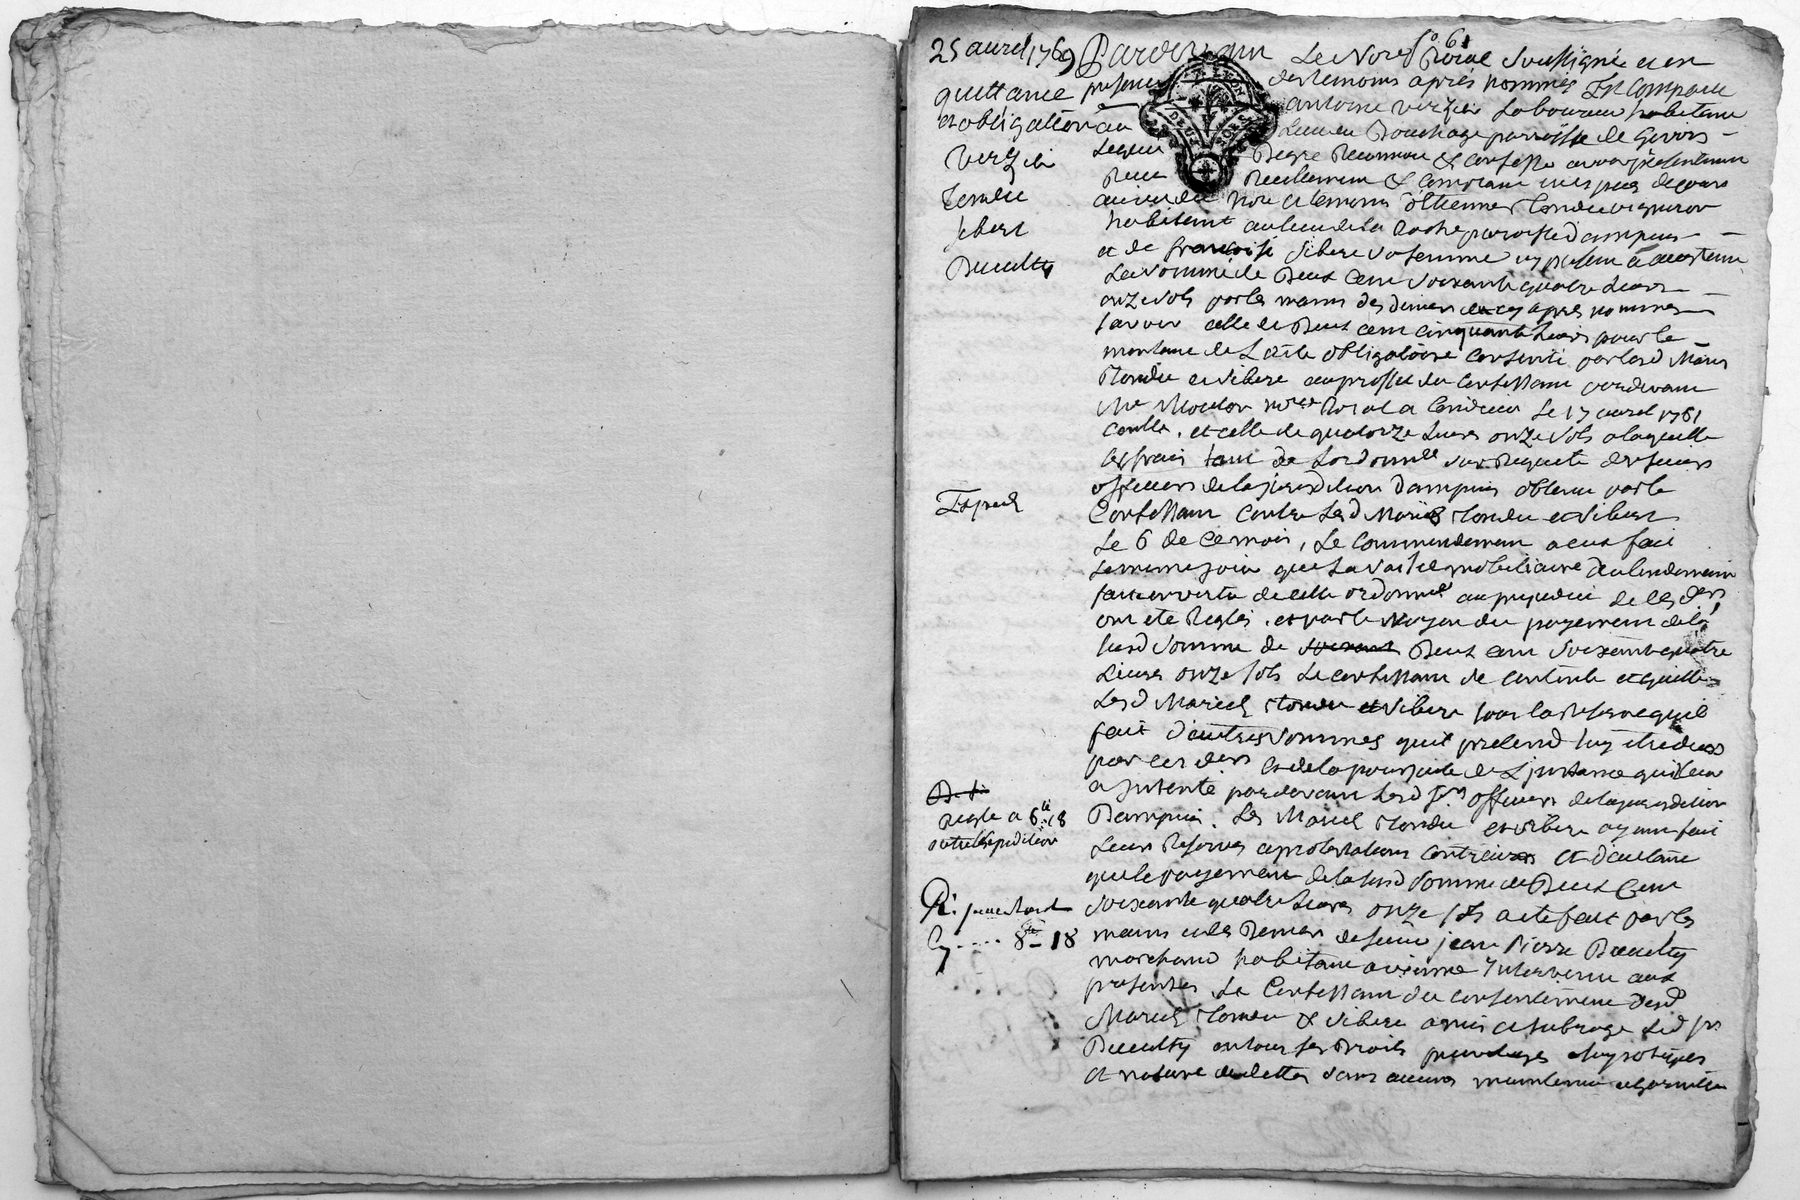 25 avril 1769
quittance
et obligation
Verzier
Tondu
Sibert
Ducultty
Exped
Reglé a 6ll 18
outre l'expedition
8ll - 18
fo 61
Pardevant Le Nore Roial soussigné et en
presence des temoins après nommés Est Comparu
antoine verzier Laboureur habitant
au Lieu du Bouchage parroisse de
Lequel de gré Reconnu & Confesse avoir presentement
Receu Reellement & Comptant en especes de cours
au vu du Nore et temoins d'Etienne Tondu vigneron
habitant au lieu de la Roche parroisse d'ampuis
et de françoise Sibert sa femme icy presents et acceptants
La somme de Deux Cent soixante quatre Livres
onze sols par les mains des deniers de cy apres nommés
savoir celle de Deux cent cinquante Livres pour le
montant de L'acte obligatoire Consenti par lesd Mariés
Tondu et Sibert au proffit du Confessant pardevant
Me Mouton nore Roial a Condrieu Le 17 avril 1761
Contllé, et celle de quatorze Livres onze sols a laquelle
les frais tant de Lordonnce sur Requete des sieurs
officiers de la jurisdiction Dampuis obtenue par le
Confessant Contre Lesd Mariés Tondu et Sibert
Le 6 de ce mois, Le Commandement a eux fait
Le meme jour que La saisie mobiliaire du lendemain
faite en vertu de celle ordonnce au prejudice de lesd
ont eté Reglés. et par le moyen du payement de la
susd somme de soixante Deux cent soixante quatre
Livres onze sols Le confessant se contente et quitte
Lesd Mariés Tondu et Sibert sous la Reserve quil
fait D'autres sommes quil pretend luy etre dues
par ces der et de la poursuite de L'instance quil leur
a Intenté pardevant Lesd srs officiers de la jurisdiction
Dampuis. Les Mariés Tondu et Sibert ayant fait
Leurs Reserves et protestations Contraires et D'autant
que le payement de la susd somme de Deux Cent
soixante quatre Livres onze sols a eté fait par les
mains et des Deniers de sieur jean Pierre Ducultty
marchand habitant a vienne Intervenu aux
presentes Le Confessant du consentement desd
Mariés Tondu & Sibert a mis et subrogé Led sr
Ducultty en tous ses Droits privileges & hypoteques
et nature de dettes sans aucune maintenue et garantie